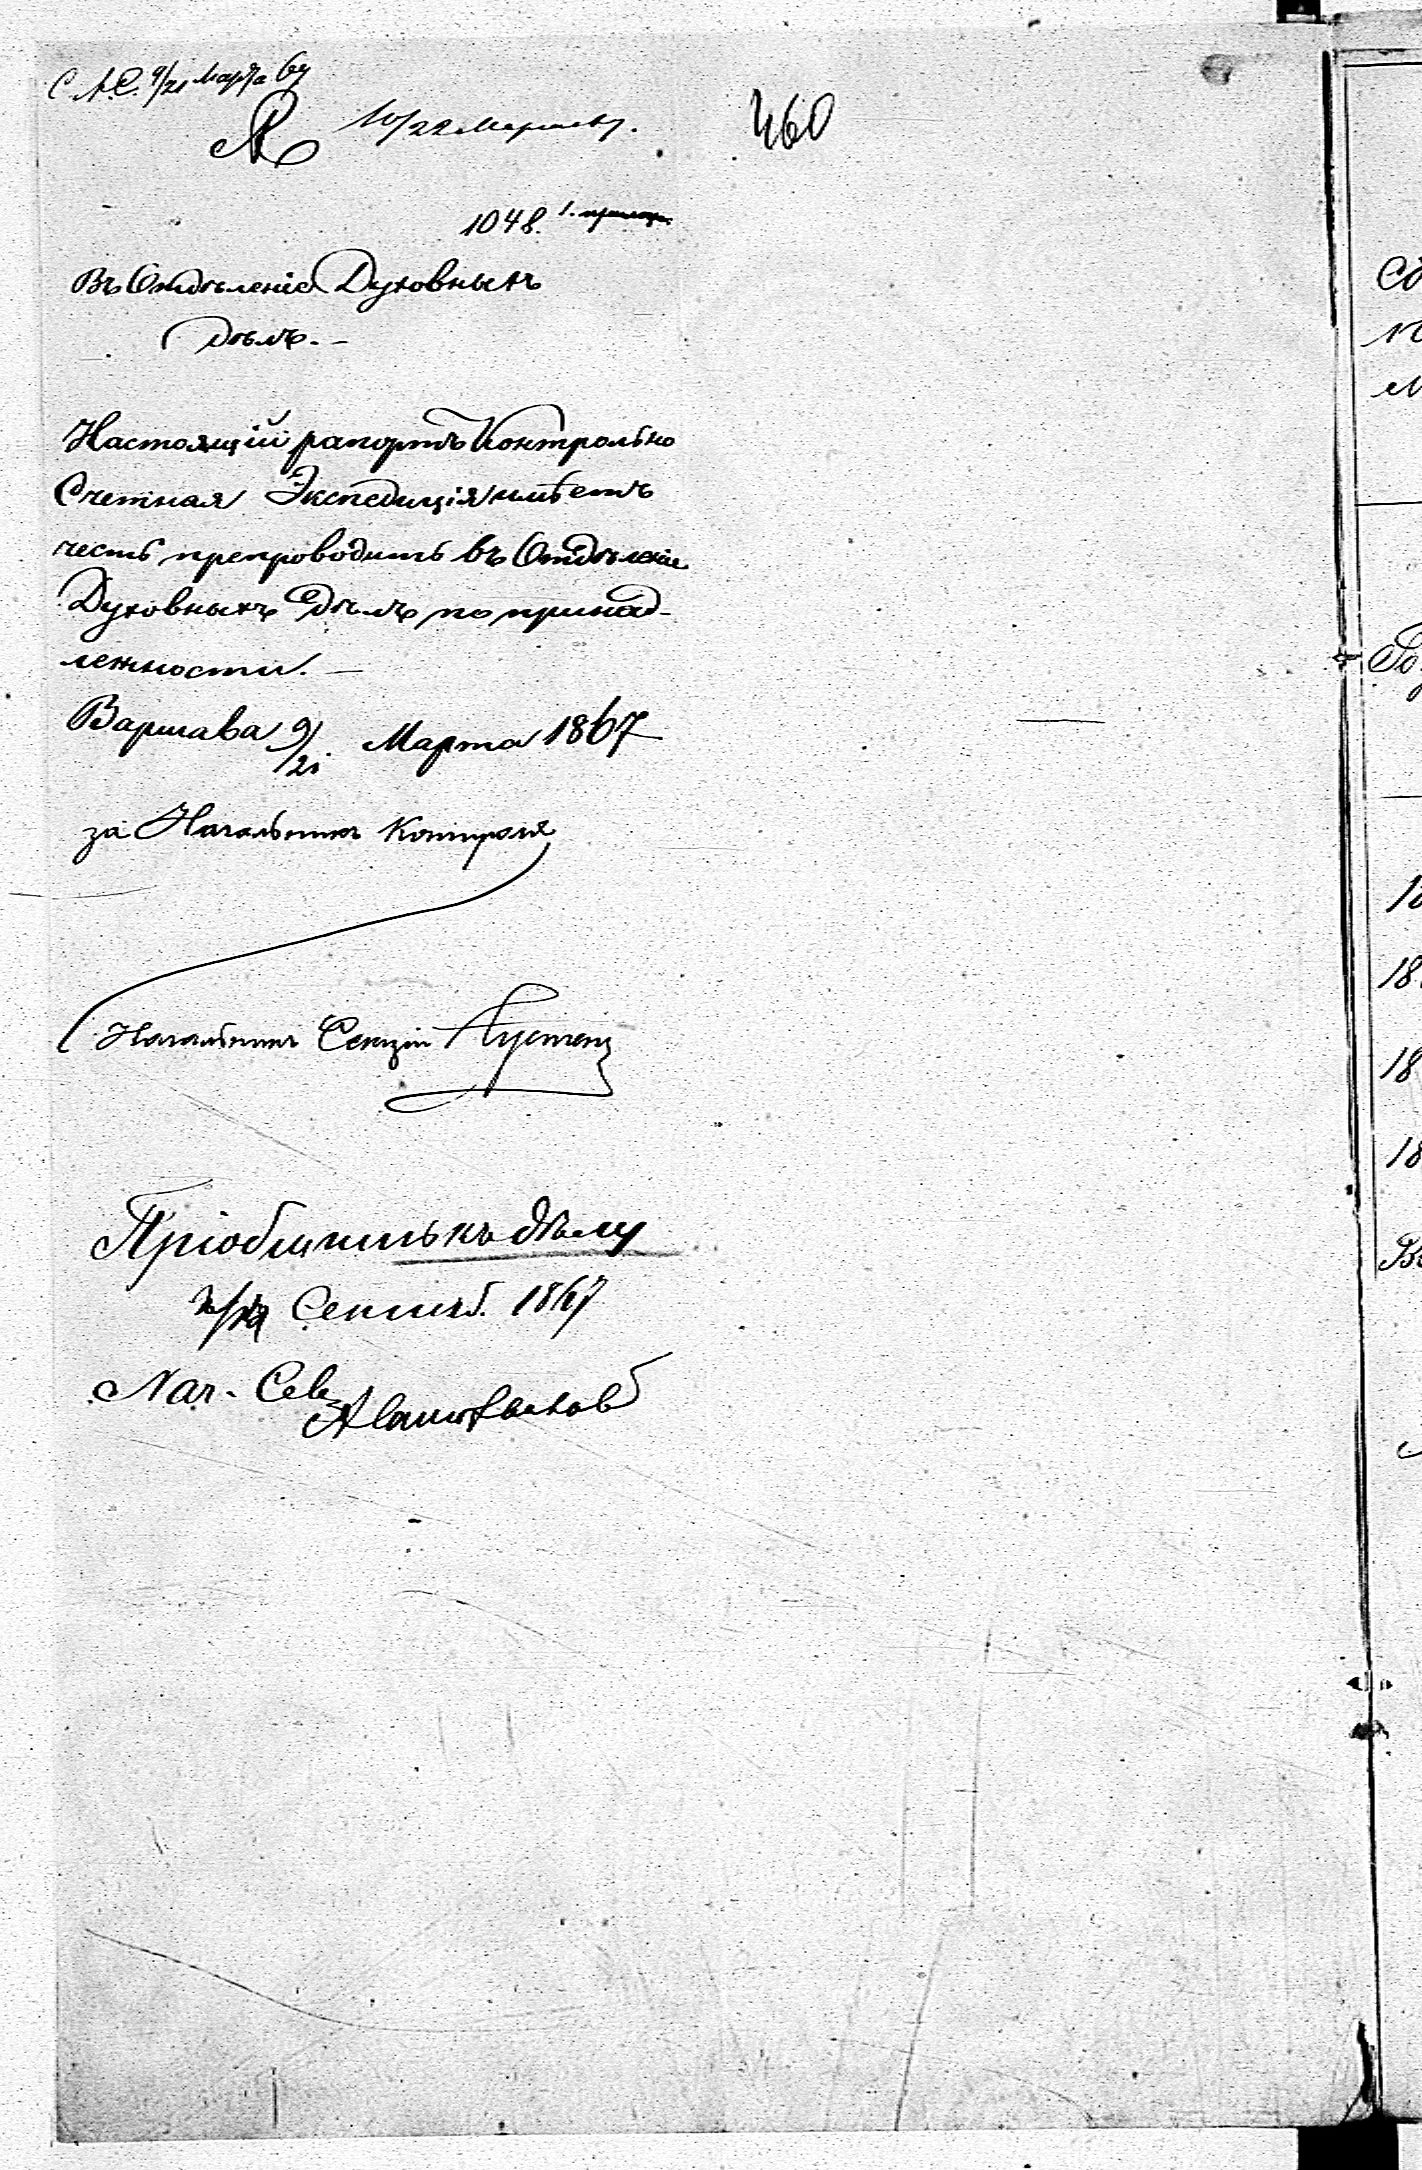 9/21 Марта 67
10/22 Марта 67.
460
1048.
Въ Отдѣленіе Духовныхъ
Дѣлъ. –
Настоящій рапортъ Контрольно
Счетная Экспедиція имѣетъ
честь препроводить въ Отдѣленіе
Духовныхъ Дѣлъ по принад-
лежности. –
Варшава 9/21 Марта 1867
за Начальникъ Контроля
Начальникъ Секціи
Пріобщить къ дѣлу
Сентяб. 1867
Нач.